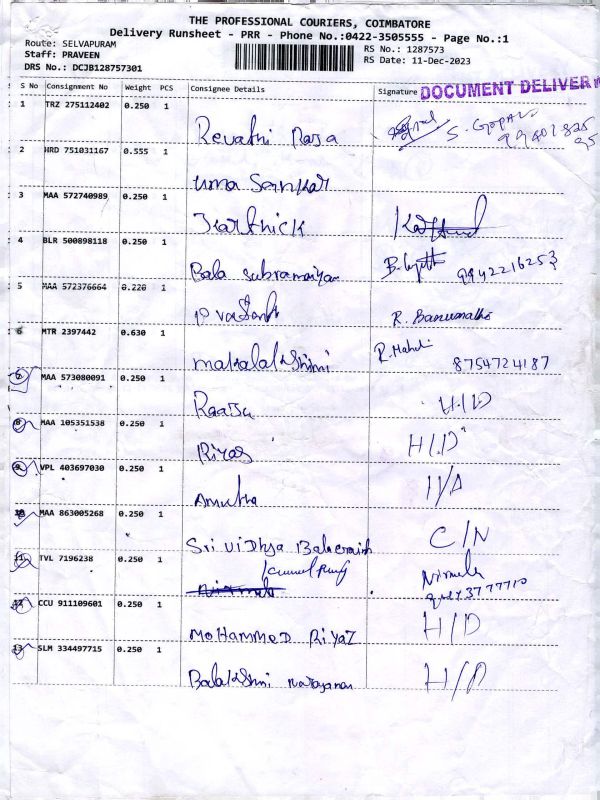 THE PROFESSIONAL COURIERS, COIMBATORE
Delivery Runsheet - PRR - Phone No.:0422-3505555 - Page No.:1
Route: SELVAPURAM
Staff: PRAVEEN
DRS No.: DCJB128757301
RS No.: 1287573
RS Date: 11-Dec-2023
S No Consignment No Weight PCS Consignee Details Signature DOCUMENT DELIVER
1 TRZ 275112402 0.250 1
Revathi Raja S. GOPAL
2 HRD 751031167 0.555 1
Uma Sankar
3 MAA 572740989 0.250 1
Karthick
4 BLR 500898118 0.250 1
Bala Subramaniyan 9942216253
5 MAA 572376664 0.220 1
P Vasanth R. Banumathi
6 MTR 2397442 0.630 1
mahalakshimi R. Mahali 8754724187
7 MAA 573080091 0.250 1
Raaju H/D
8 MAA 105351538 0.250 1
Riyas H/D
9 VPL 403697030 0.250 1
Amutha
10 MAA 863005268 0.250 1
Sri vidhya C/N
11 TVL 7196238 0.250 1
Nirmala
12 CCU 911109601 0.250 1
MOHAMMED RiYAZ H/D
13 SLM 334497715 0.250 1
Balakshmi narayanan H/D